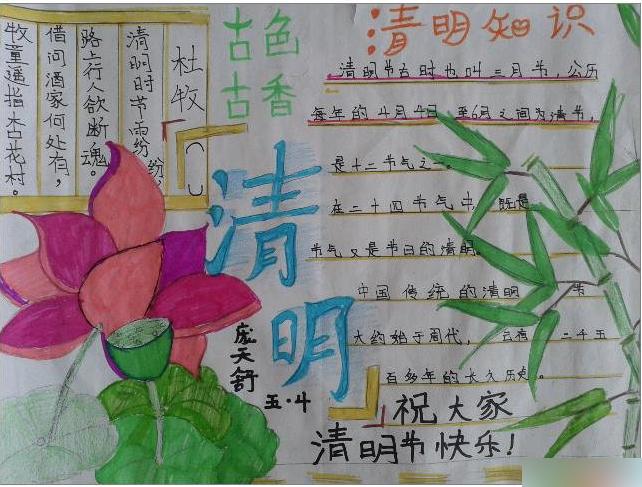 杜牧
清明时节雨纷纷,
路上行人欲断魂。
借问酒家何处有,
牧童遥指杏花村。
古色
古香
清明
庞天舒
五·4
清明知识
清明节古时也叫三月节,公历
每年的4月4日 至6月之间为清节,
是十二节气之一。
在二十四节气中, 既是
节气又是节日的清明。
中国传统的清明 节
大约始于周代, 有二千五
百多年的长久历史。
祝大家
清明节快乐!